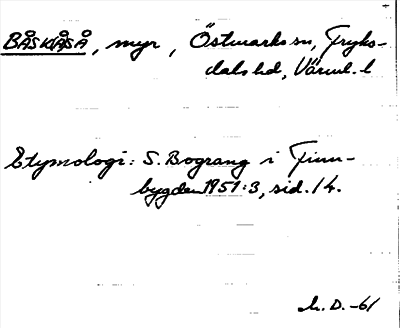 BÅSKJÅSÅ, myr, Östmarks sn, Fryks-
dals hd, Värml. l
Etymologi: S. Bograng i Finn-
bygden 1951:3, sid. 14.
h. D. -61